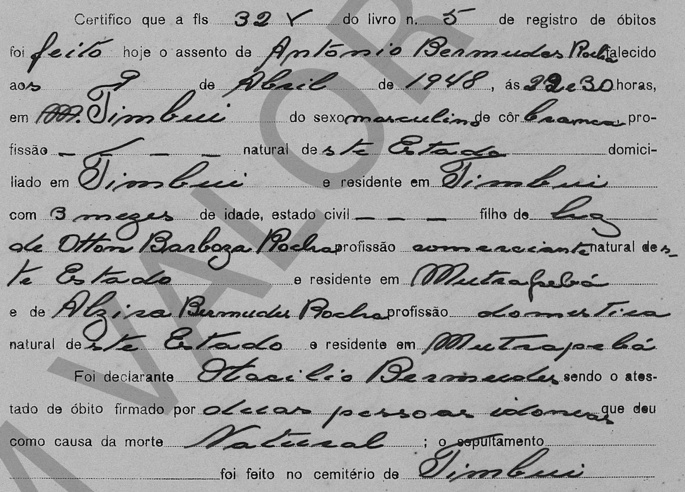 Certifico que a fls 32 v do livro n. 5 de registro de óbitos
foi feito hoje o assento de Antônio Bermudes Rocha falecido
aos 9 de Abril de 1948, ás 22 e 30 horas,
em Timbui do sexo masculino de côr branca, pro-
fissão — — — — natural de ste Estado domici-
liado em Timbui e residente em Timbui
com 3 mezes de idade, estado civil — — — filho de leg
de Otton Barboza Rocha profissão comerciante natural des-
te Estado e residente em Mutrapebá
e de Alzira Bermudes Rocha profissão domestica
natural de ste Estado e residente em Mutrapebá
Foi declarante Otacilio Bermudes sendo o ates-
tado de óbito firmado por duas pessoas idoneas que deu
como causa da morte Natural ; o sepultamento
foi feito no cemitério de Timbui
M VALOR